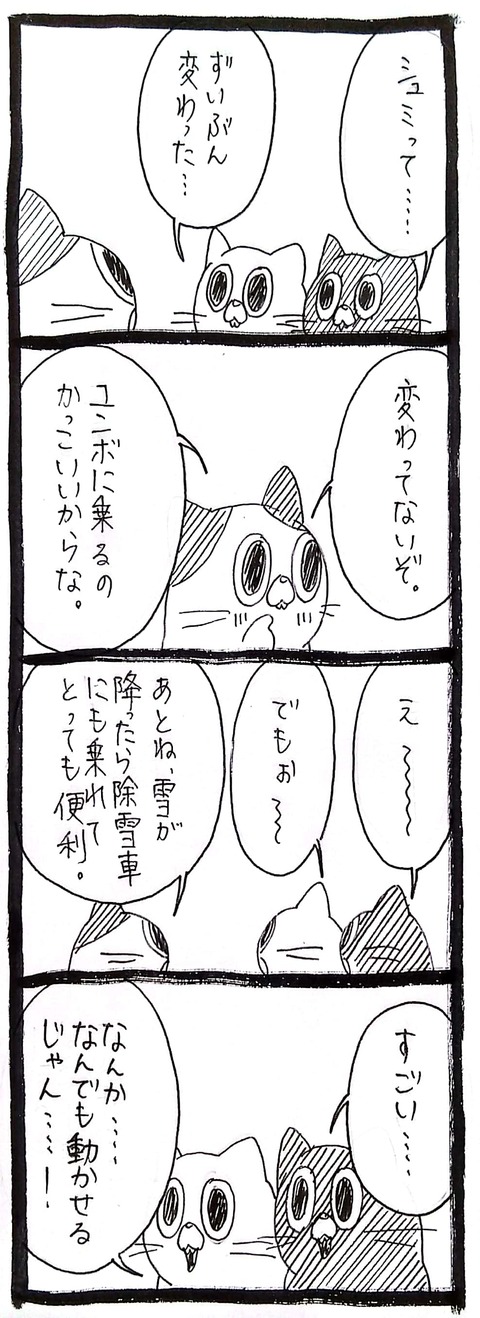 シュミって……
ずいぶん
変わった…
変わってないぞ。
ユンボに乗るの
かっこいいからな。
え〜〜〜
でもぉ〜〜
あとね、雪が
降ったら除雪車
にも乗れて
とっても便利。
すごい……
なんか……
なんでも動かせる
じゃん……！